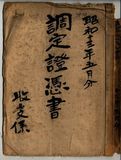 昭和十三年五月分
調定證憑書
收支係